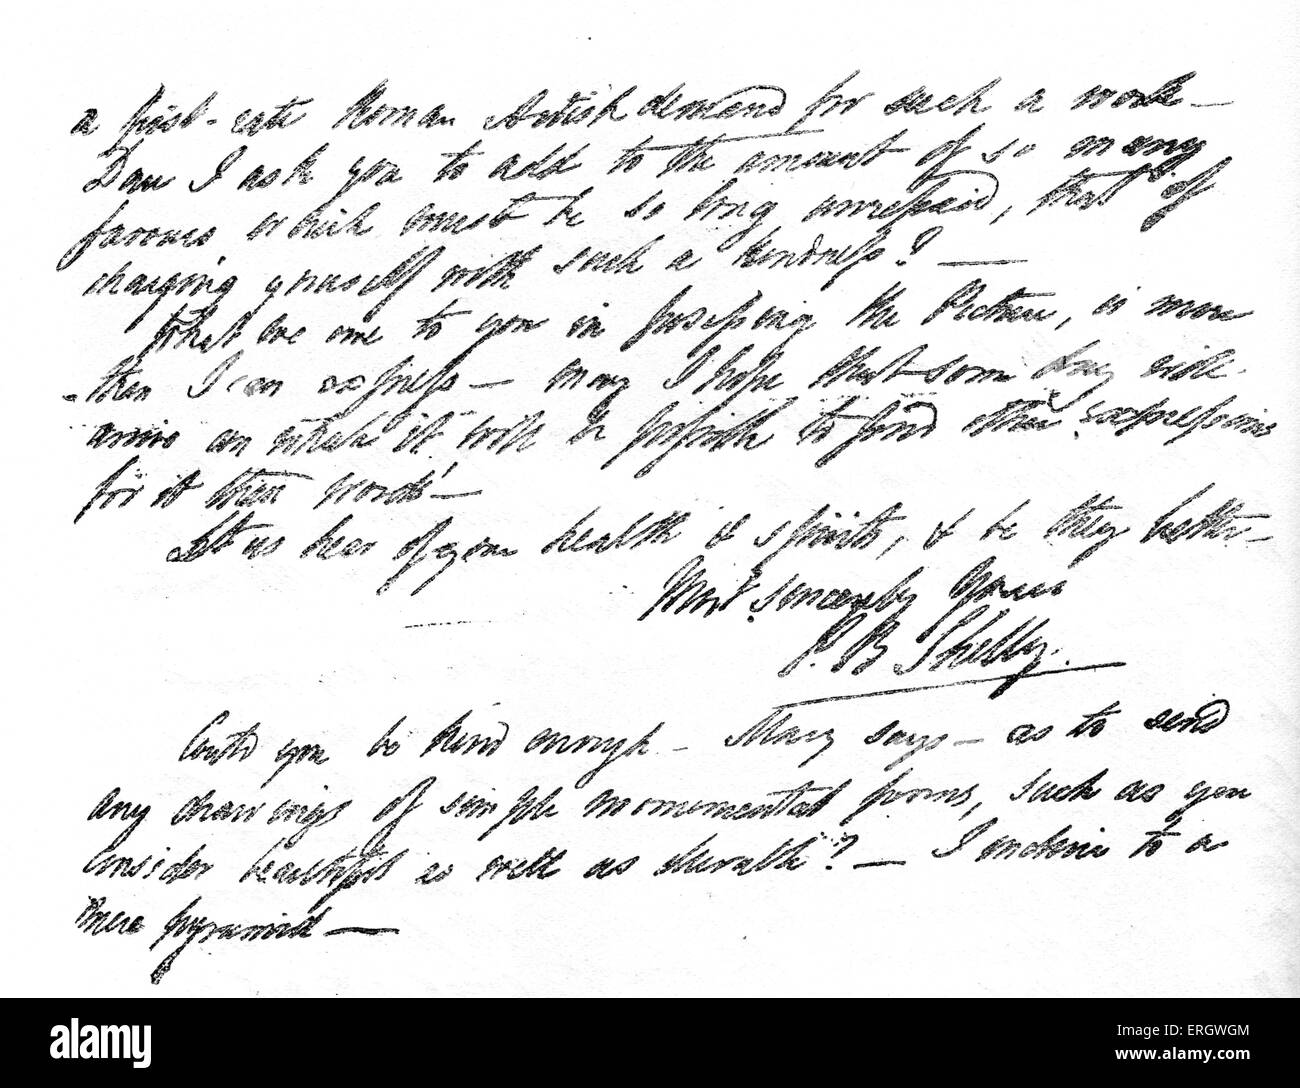 a first-rate Roman Artist demand for such a work —
Dare I ask you to add to the amount of so many
favours which must be so long unrepaid, that of
charging yourself with such a kindness? —
What we owe to you in possessing the Picture, is more
than I can express — may I hope that some day will
arrive on which it will be possible to find other expressions
for it than words! —
Let us hear of your health & spirits, & be they better —
Most sincerely Yours
P. B Shelley.
Could you be kind enough — Mary says — as to send
any drawings of simple monumental forms, such as you
consider beautiful as well as durable? — I incline to a
mere pyramid —
alamy
Image ID: ERGWGM
www.alamy.com